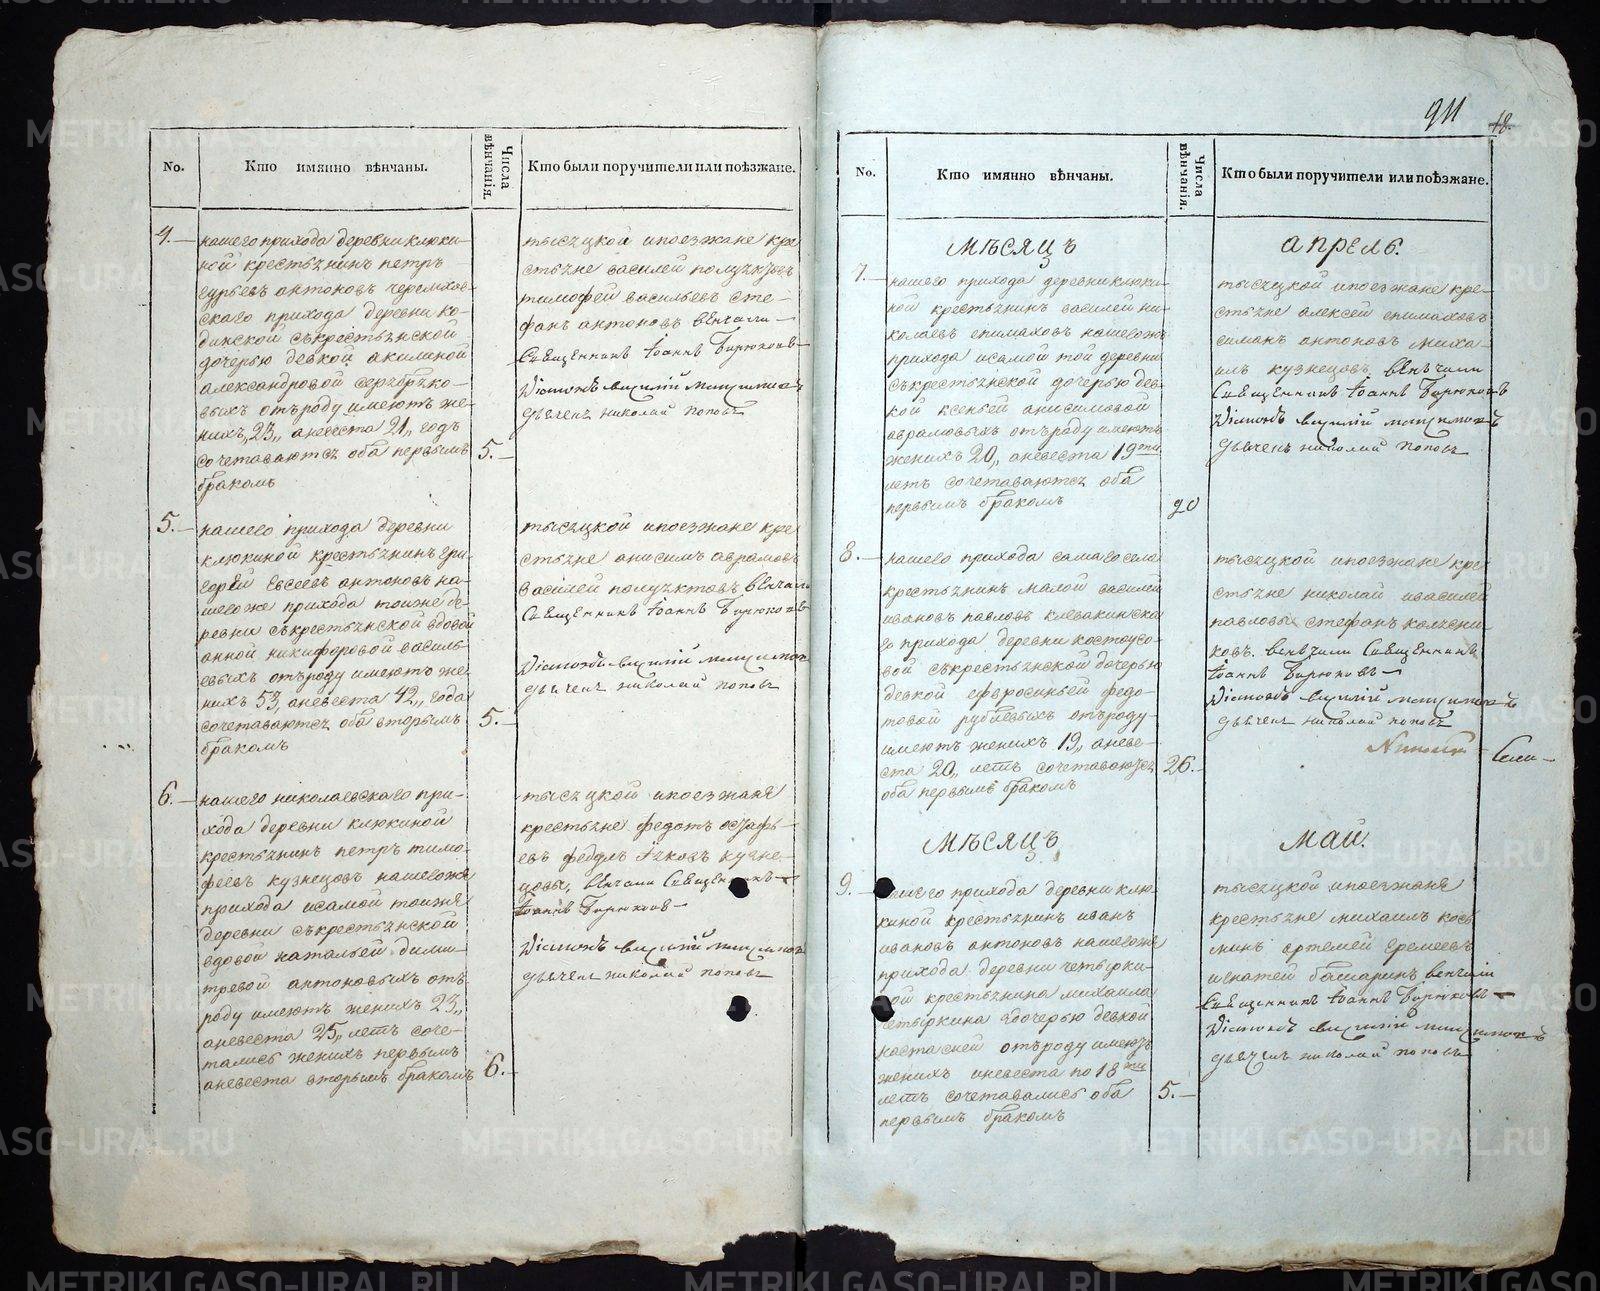 No.
Кто имянно вѣнчаны.
Числа вѣнчанія.
Кто были поручители или поѣзжане.
4.
нашего прихода деревни клюки-
ной крестьянинъ петръ
гурьевъ антоновъ черемхов-
скаго прихода деревни ко-
динской съкрестьянской
дочерью девкой акилиной
александровой серебряко-
выхъ отъроду имеютъ же-
нихъ 23,, аневеста 21,, годъ
сочетаваются оба первымъ
бракомъ
5.
тысяцкой ипоезжане кре
стьяне василей полуяктовъ
тимофей васильевъ сте-
фанъ антоновъ венчали
Священникъ Іоаннъ Бирюковъ
Діаконъ василій
дьячекъ николай поповъ
5.
нашего прихода деревни
клюкиной крестьянинъ гри-
горей евсеевъ антоновъ на-
шегоже прихода тоиже де-
ревни съкрестьянской вдовой
анной никифоровой василь-
евыхъ отъроду имеютъ же-
нихъ 53, аневеста 42,, года
сочетаваются оба вторымъ
бракомъ
5.
тысяцкой ипоезжане кре
стьяне анисимъ аврамовъ
василей полуяктовъ венчали
Священникъ Іоаннъ Бирюковъ
Діаконъ василій
дьячекъ николай поповъ
6.
нашего николаевскаго при-
хода деревни клюкиной
крестьянинъ петръ тимо-
феевъ кузнецовъ нашегоже
прихода исамой тоижя
деревни съкрестьянской
вдовой натальей дими-
тревой антоновыхъ отъ-
роду имеютъ женихъ 23,,
аневеста 25,, летъ соче-
тались женихъ первымъ
аневеста вторымъ бракомъ
6.
тысяцкой ипоезжаня
крестьяне федотъ
евъ яковъ кузне-
цовы, венчали Священникъ
Іоаннъ Бирюковъ
Діаконъ василій
дьячекъ николай поповъ
911
18.
No.
Кто имянно вѣнчаны.
Числа вѣнчанія.
Кто были поручители или поѣзжане.
мѣсяцъ
апрель.
7.
нашего прихода деревни клюки-
ной крестьянинъ василей ни-
колаевъ епимаховъ нашегожъ
прихода исамой той деревни
съкрестьянской дочерью дев-
кой ксеньей анисимовой
аврамовыхъ отъроду имеютъ
женихъ 20,, аневеста 19ти
летъ сочетаваются оба
первымъ бракомъ
20
тысяцкой ипоезжане кре-
стьяне алексей епимаховъ
симанъ антоновъ миха-
илъ кузнецовъ, венчали
Священникъ Іоаннъ Бирюковъ
Діаконъ василій
дьячекъ николай поповъ
8.
нашего прихода самаго села
крестьянинъ малой василей
ивановъ павловъ клевакинска
го прихода деревни костоусо-
вой съкрестьянской дочерью
девкой ефросиньей федо-
товой рублевыхъ отъроду
имеютъ женихъ 19,, аневе-
ста 20,, летъ сочетаваются
оба первымъ бракомъ
26.
тысяцкой ипоезжане кре
стьяне николай ивасилей
павловы стефанъ колясни-
ковъ. венчали Священникъ
Іоаннъ Бирюковъ
Діаконъ василій
дьячекъ николай поповъ
мѣсяцъ
май.
9.
нашего прихода деревни клю-
киной крестьянинъ иванъ
ивановъ антоновъ нашегоже
прихода деревни четырки-
ной крестьянина михаила
четыркина здочерью девкой
настасией отъроду имеютъ
женихъ иневеста по 18ти
летъ сочетавались оба
первымъ бракомъ
5.
тысяцкой ипоезжаня
крестьяне михаилъ кось
минъ артемей еремеевъ
игнатей башаринъ венчали
Священникъ Іоаннъ Бирюковъ
Діаконъ василій
дьячекъ николай поповъ
METRIKI.GASO-URAL.RU